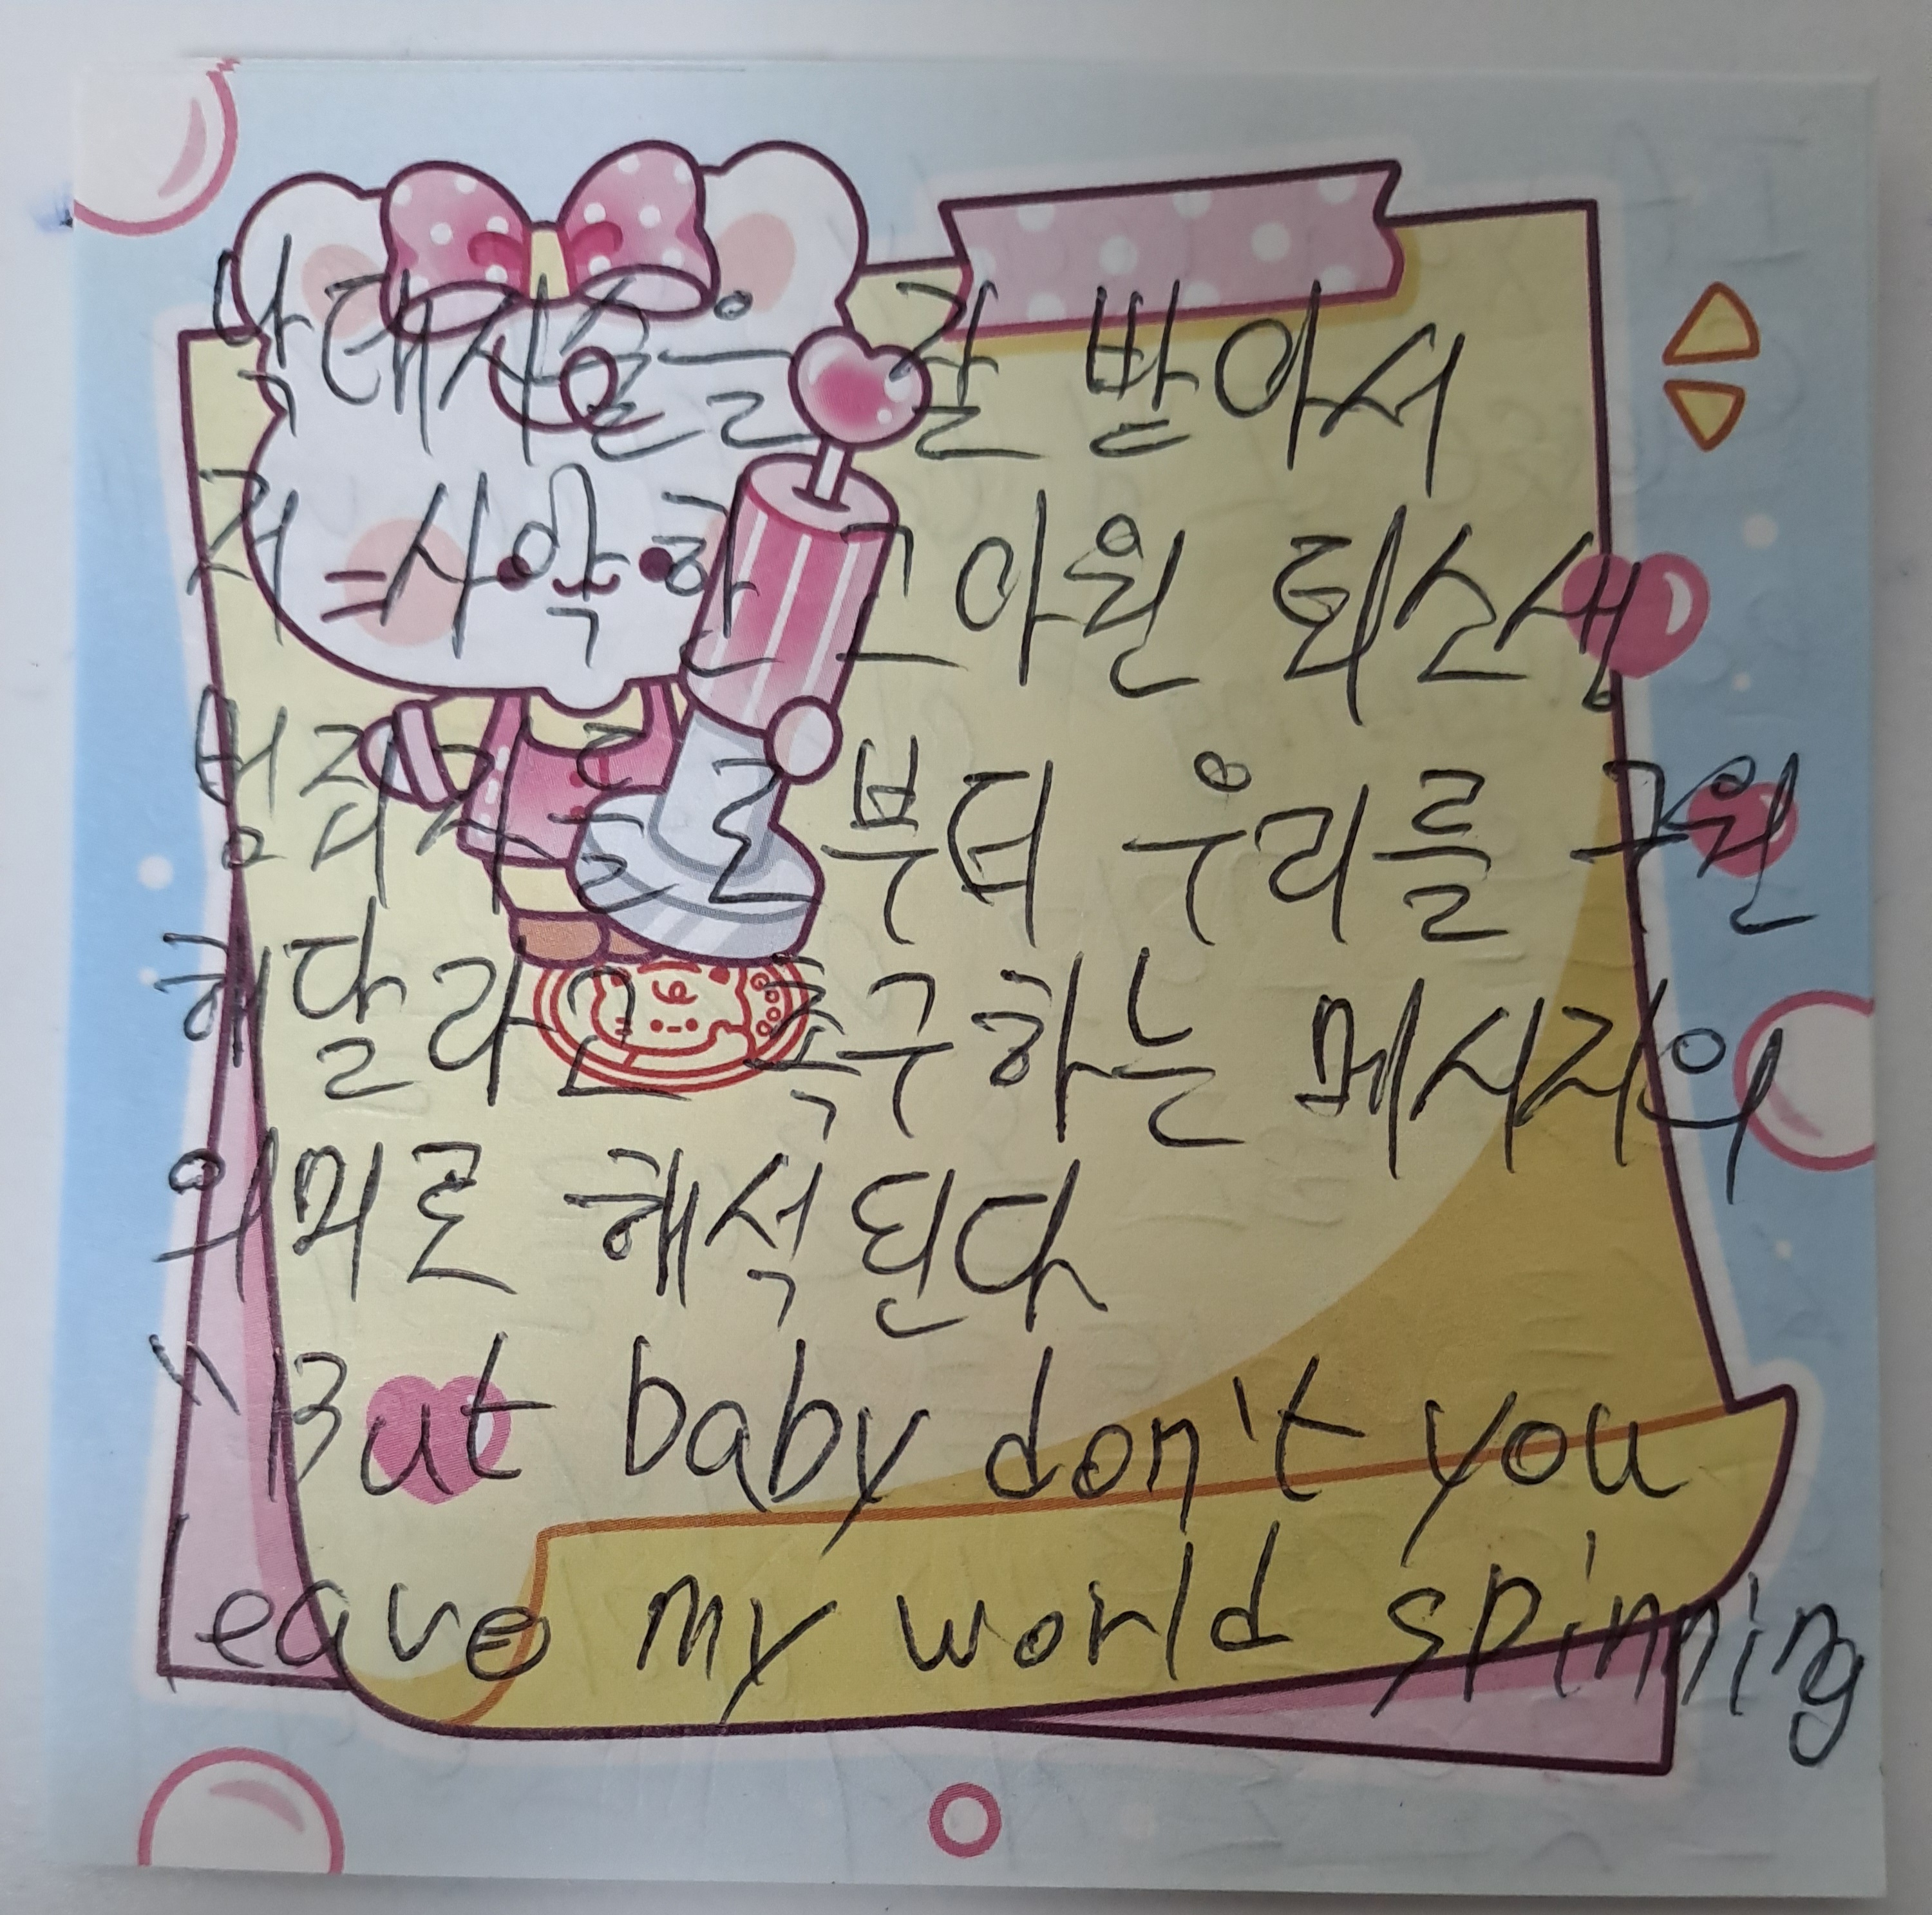 낙태시술을 잘 받아서
저 사악한 고아원 퇴소생
범죄자들로부터 우리를 구원
해달라고 촉구하는 메시지의
의미로 해석된다
"But baby don't you
leave my world spinning